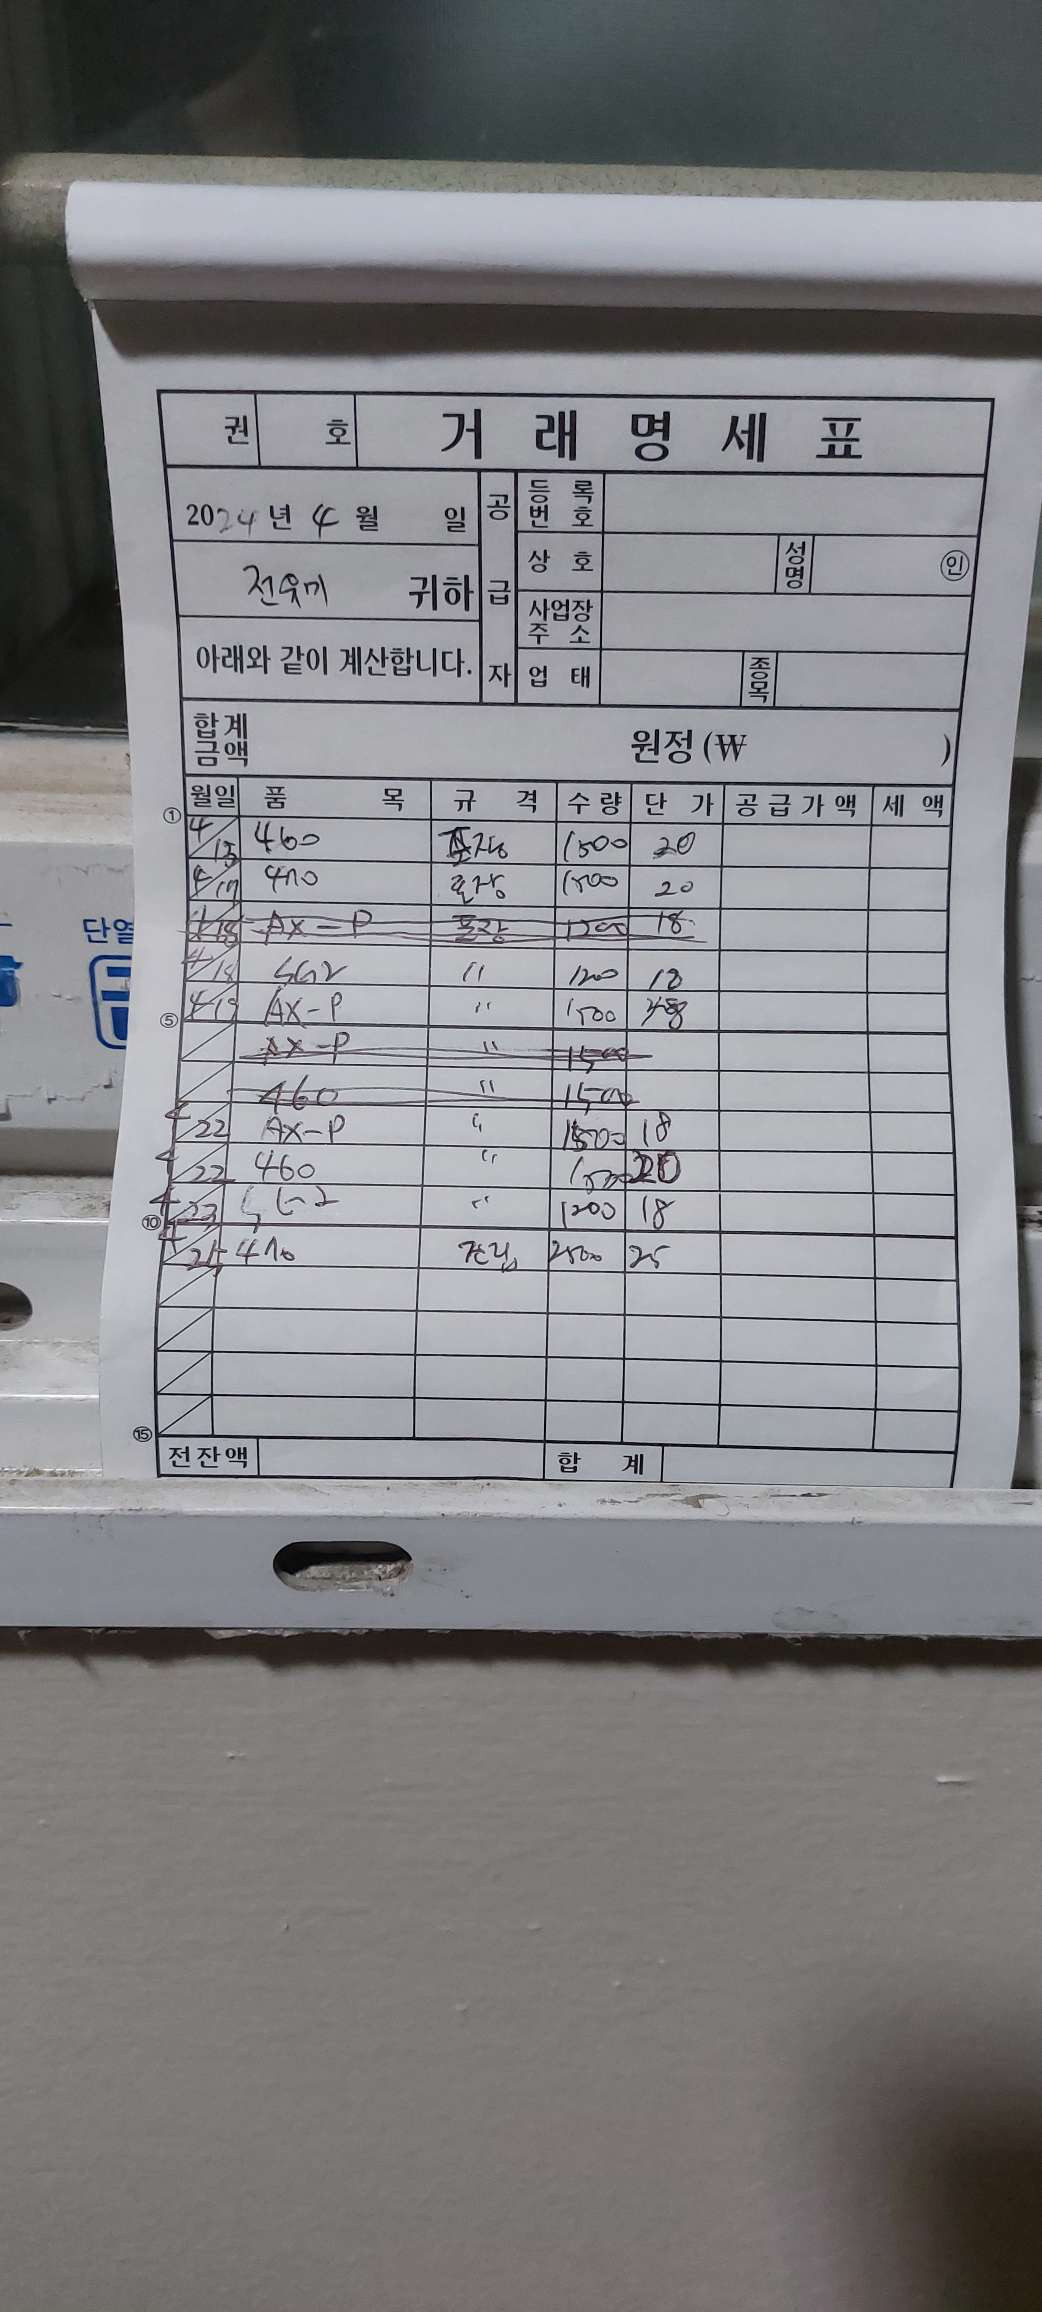 권 호 거래명세표
2024년 4월 일
귀하
아래와 같이 계산합니다.
공급자
등록번호
상호 성명 인
사업장주소
업태 종목
합계금액 원정(₩ )
월일 품목 규격 수량 단가 공급가액 세액
① 4/15 460 포장 1500 20
4/17 470 포장 1500 20
4/18 AX-P 포장 1200 18
4/18 SG2 " 1200 18
⑤ 4/19 AX-P " 1500
AX-P " 1500
460 " 1500
4/22 AX-P " 1500 18
4/22 460 " 1500 20
⑩ 4/23 SG2 " 1200 18
4/ 470 조립 2500 25
⑮
전잔액 합계
단열